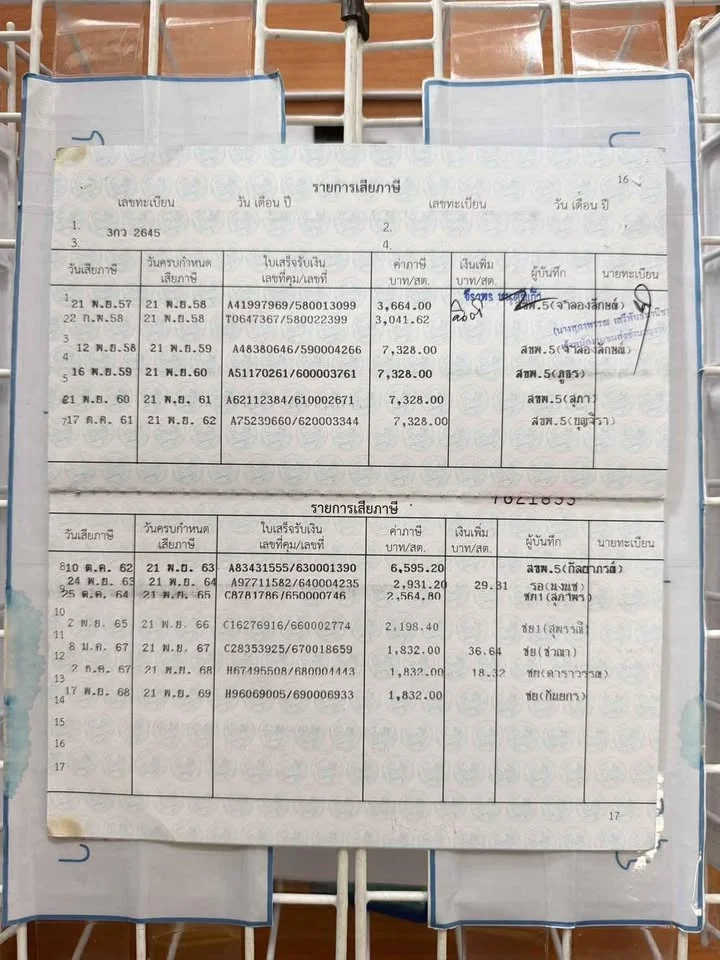 16
รายการเสียภาษี
เลขทะเบียน วัน เดือน ปี เลขทะเบียน วัน เดือน ปี
1. 2.
3กว 2645
3. 4.
วันเสียภาษี วันครบกำหนดเสียภาษี ใบเสร็จรับเงิน เลขที่คุม/เลขที่ ค่าภาษี บาท/สต. เงินเพิ่ม บาท/สต. ผู้บันทึก นายทะเบียน
1 21 พ.ย.57 21 พ.ย.58 A41997969/580013099 3,664.00 สขพ.5(จำลองลักษณ์)
22 ก.พ.58 21 พ.ย.58 T0647367/580022399 3,041.62
3
12 พ.ย.58 21 พ.ย.59 A48380646/590004266 7,328.00 สขพ.5(จำลองลักษณ์)
4
16 พ.ย.59 21 พ.ย.60 A51170261/600003761 7,328.00 สขพ.5(ภูธร)
5
21 พ.ย. 60 21 พ.ย. 61 A62112384/610002671 7,328.00 สขพ.5(สุภา)
7 17 ต.ค. 61 21 พ.ย. 62 A75239660/620003344 7,328.00 สขพ.5(บุญจิรา)
รายการเสียภาษี
วันเสียภาษี วันครบกำหนดเสียภาษี ใบเสร็จรับเงิน เลขที่คุม/เลขที่ ค่าภาษี บาท/สต. เงินเพิ่ม บาท/สต. ผู้บันทึก นายทะเบียน
8 10 ต.ค. 62 21 พ.ย. 63 A83431555/630001390 6,595.20 สขพ.5(กัลยาภรณ์)
24 พ.ย. 63 21 พ.ย. 64 A97711582/640004235 2,931.20 29.31
9
25 ต.ค. 64 21 พ.ย. 65 C8781786/650000746 2,564.80 ชย1(สุภาพร)
10
2 พ.ย. 65 21 พ.ย. 66 C16276916/660002774 2,198.40 ชย1(สุพรรณี)
11
8 ม.ค. 67 21 พ.ย. 67 C28353925/670018659 1,832.00 36.64 ชย(ชวณา)
12
2 ธ.ค. 67 21 พ.ย. 68 H67495508/680004443 1,832.00 18.32 ชย(ดาราวรรณ)
13
17 พ.ย. 68 21 พ.ย. 69 H96069005/690006933 1,832.00 ชย(กันยกร)
14
15
16
17
17